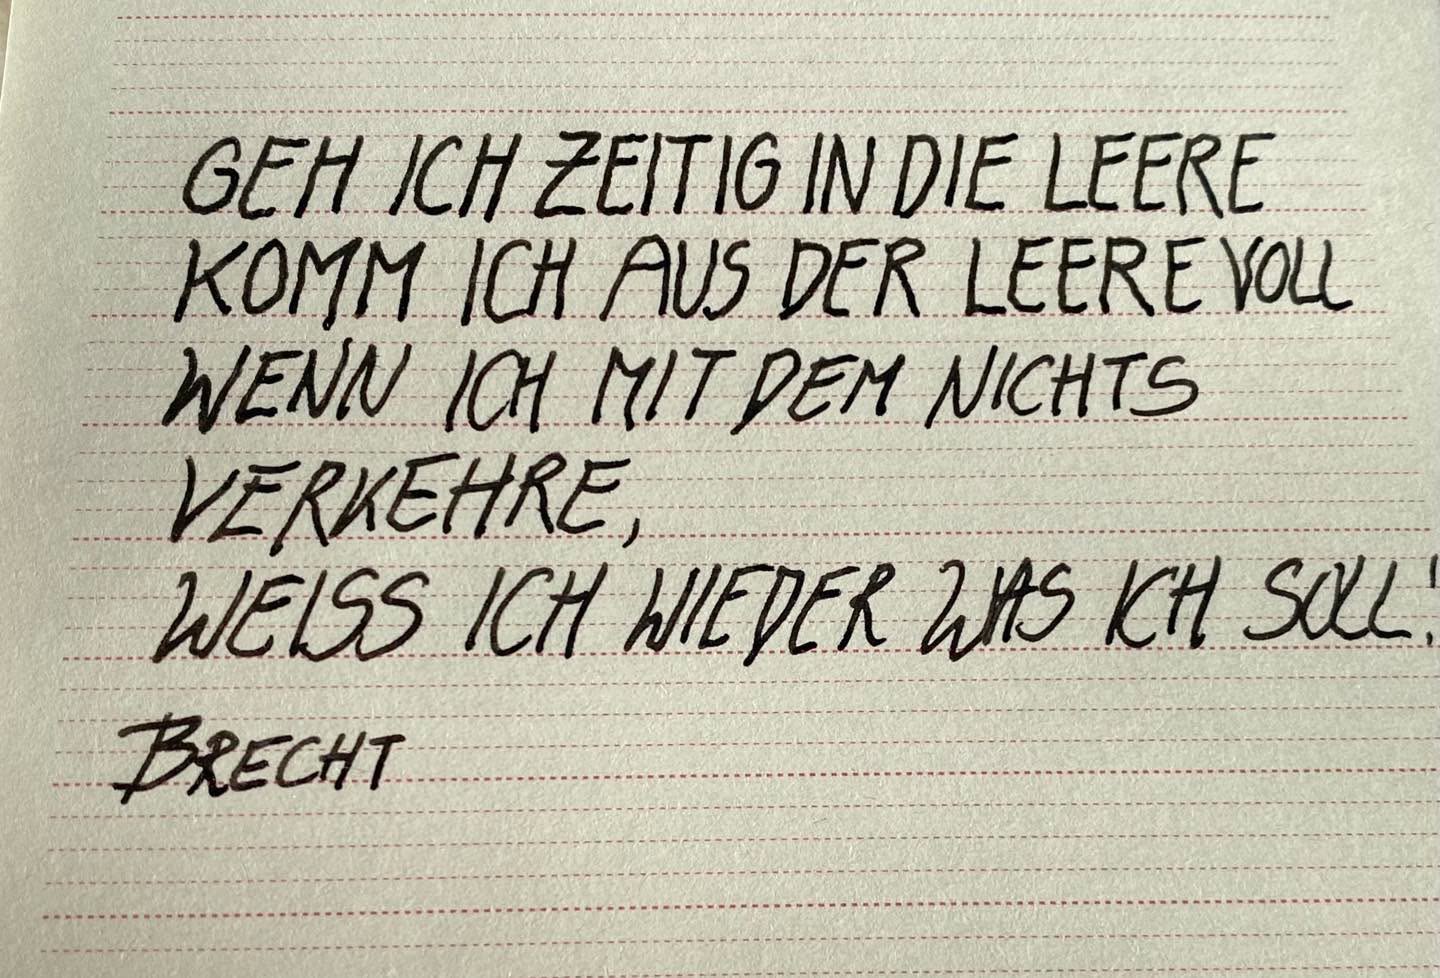 GEH ICH ZEITIG IN DIE LEERE
KOMM ICH AUS DER LEERE VOLL
WENN ICH MIT DEM NICHTS
VERKEHRE,
WEISS ICH WIEDER WAS ICH SOLL!
BRECHT